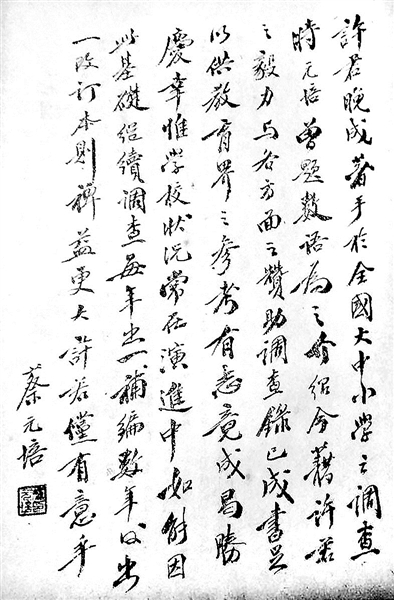 許君晚成著手於全國大中小學之調查
時元培曾題數語為之介紹今藉許君
之毅力与各方面之讚助調查錄已成書足
以供教育界之參考有志竟成曷勝
慶幸惟學校狀況常在演進中如能因
此基礎繼續調查每年出一補編數年後出
一改訂本則裨益更大許君儻有意乎
蔡元培